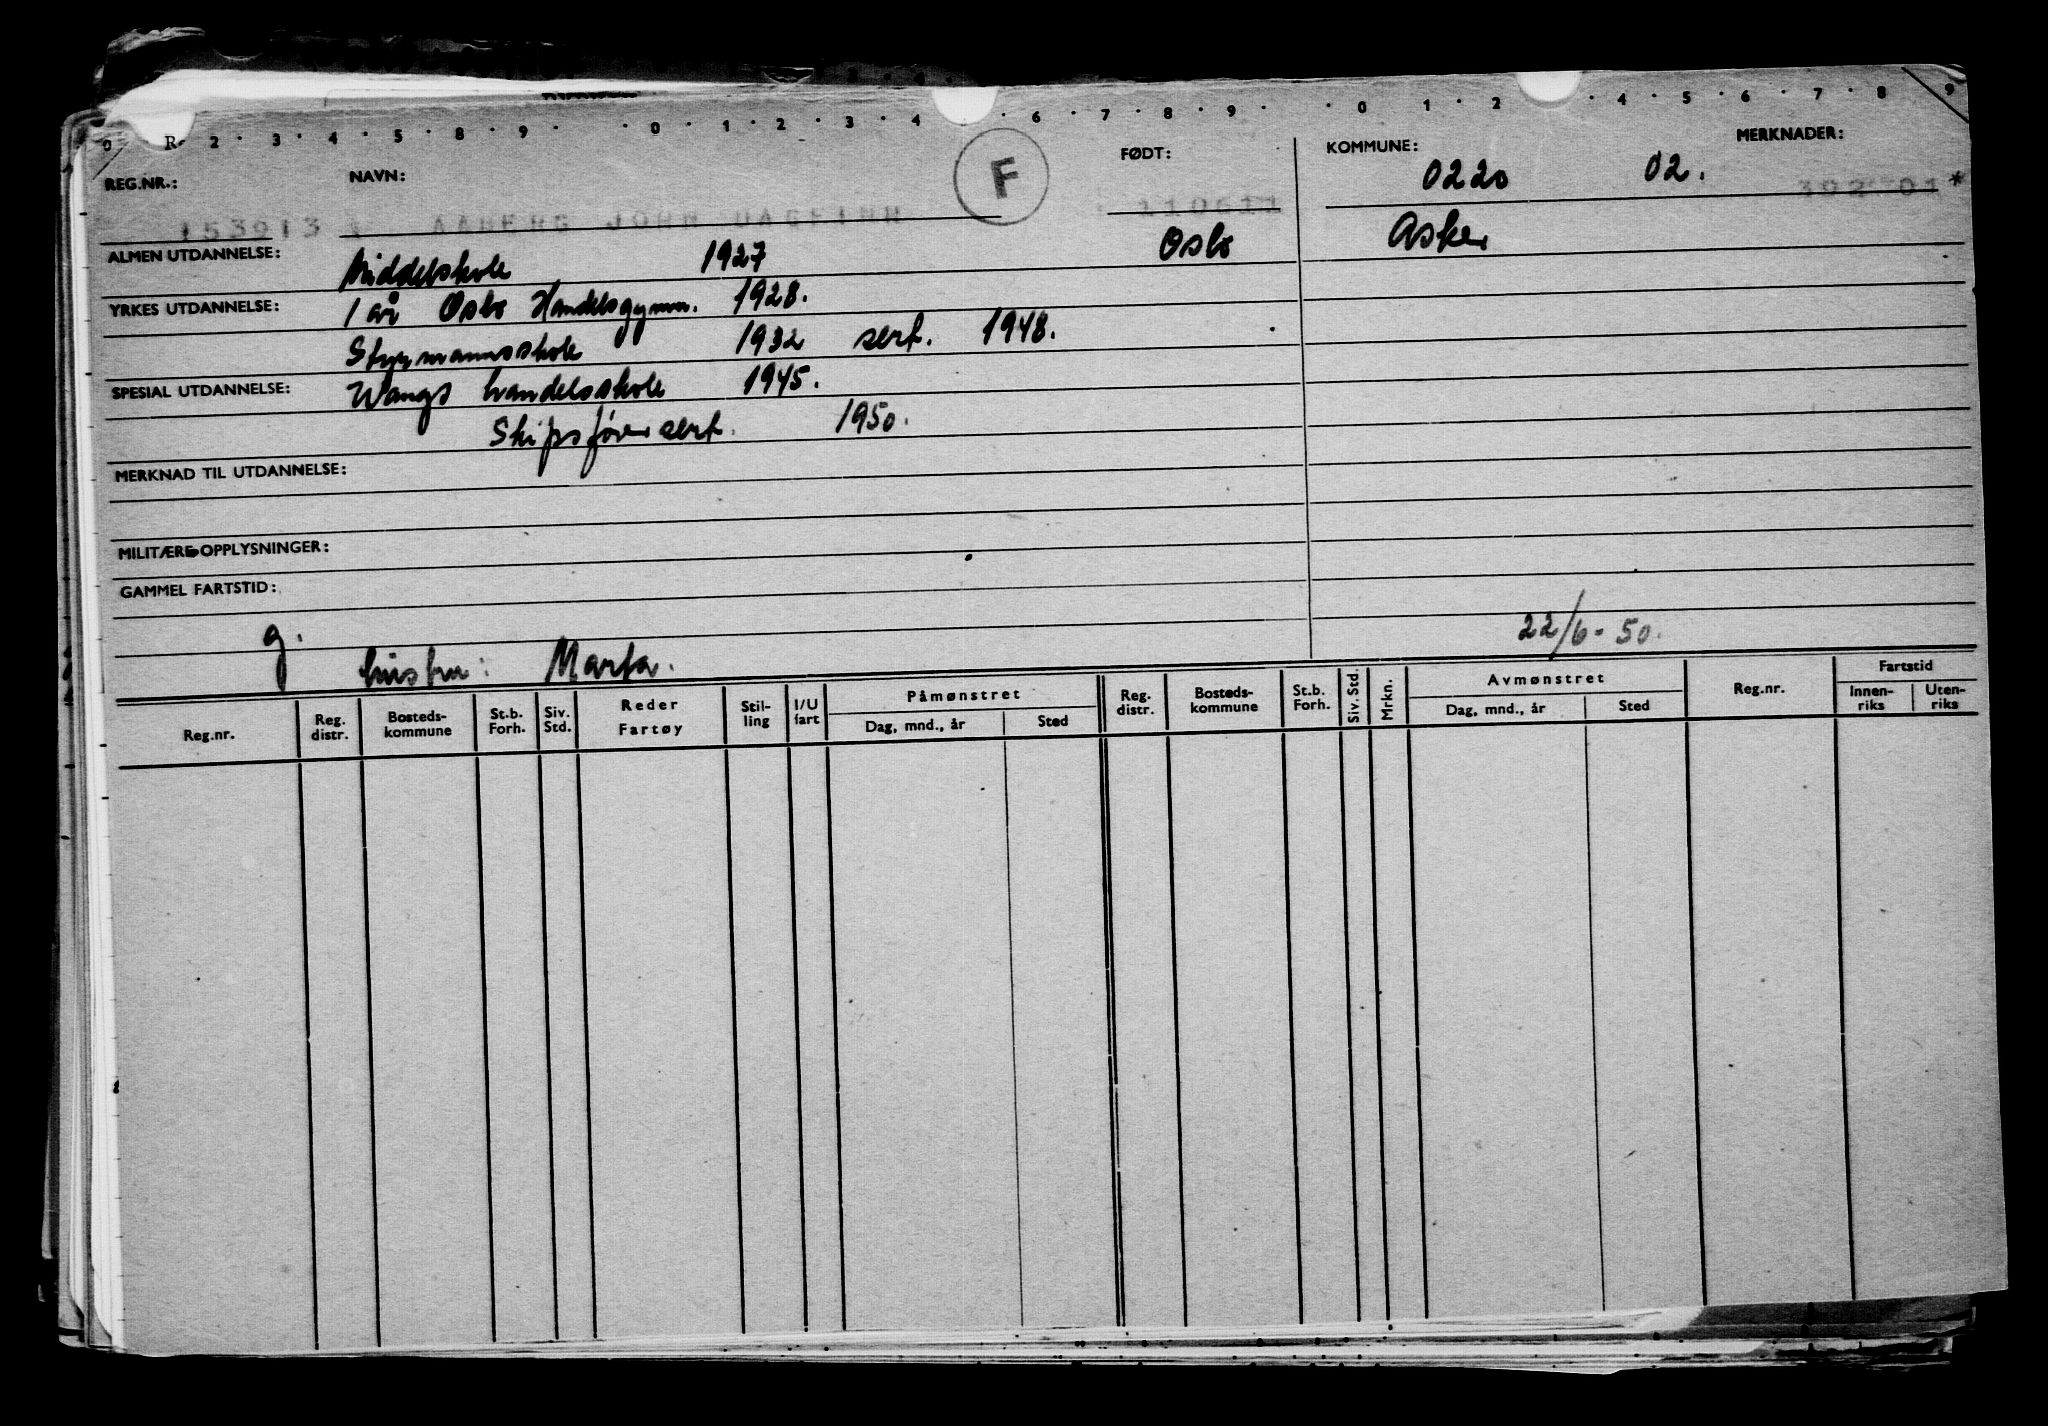 0 R. 2 · 3 · 4 · 5 · 8 · 9 · · 0 · 1 · 2 · 3 · 4 · · 6 · 7 · 8 · 9 · · 0 · 1 · 2 · · 4 · 5 · 6 · 7 · 8 · 9
REG.NR.: NAVN: F FØDT: KOMMUNE: 0220 02. MERKNADER:
AABERG JOHN DAGFINN 110611 *
ALMEN UTDANNELSE: Middelskole 1927 Oslo Asker
YRKES UTDANNELSE: 1 år Oslo Handelsgymn. 1928.
Styrmannsskole 1932 sert. 1948.
SPESIAL UTDANNELSE: Wangs handelsskole 1945.
Skipsfører sert. 1950.
MERKNAD TIL UTDANNELSE:
MILITÆRE OPPLYSNINGER:
GAMMEL FARTSTID:
g. 22/6-50.
hustru: Marta.
Reg.nr. Reg. distr. Bosteds-kommune St.b. Forh. Siv. Std. Reder Fartøy Stil-ling I/U fart Påmønstret Dag, mnd., år Sted Reg. distr. Bosteds-kommune St.b. Forh. Siv. Std. Mrkn. Avmønstret Dag, mnd., år Sted Reg.nr. Fartstid Innen-riks Uten-riks